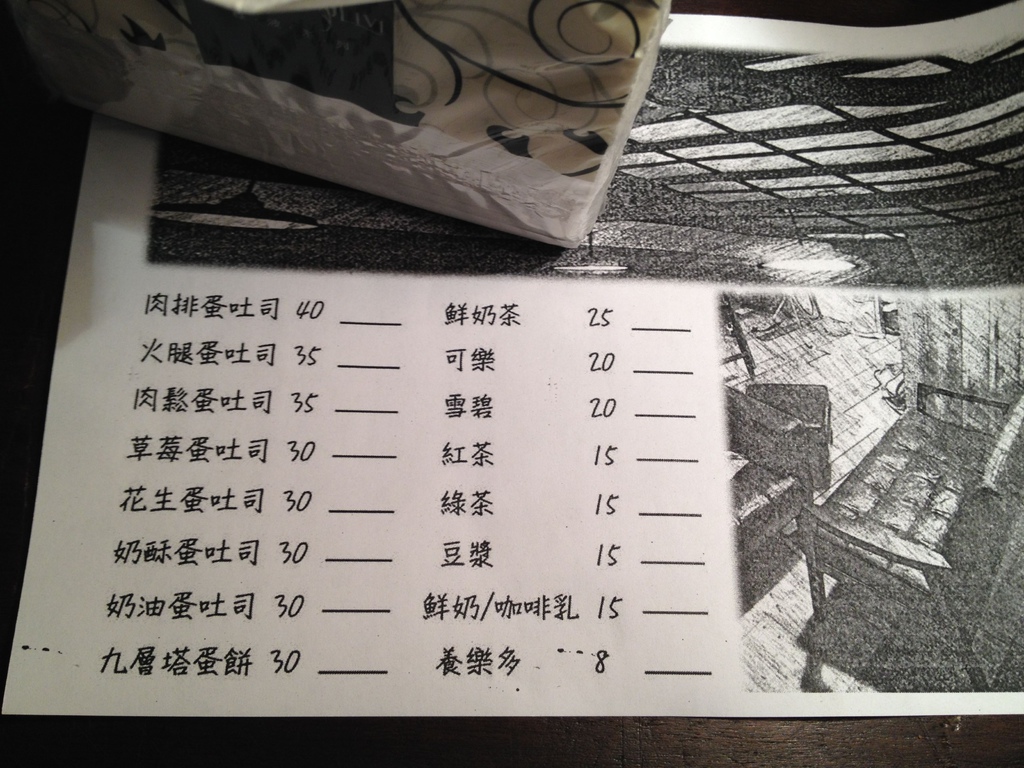 肉排蛋吐司 40 ____ 鮮奶茶 25 ____
火腿蛋吐司 35 ____ 可樂 20 ____
肉鬆蛋吐司 35 ____ 雪碧 20 ____
草莓蛋吐司 30 ____ 紅茶 15 ____
花生蛋吐司 30 ____ 綠茶 15 ____
奶酥蛋吐司 30 ____ 豆漿 15 ____
奶油蛋吐司 30 ____ 鮮奶/咖啡乳 15 ____
九層塔蛋餅 30 ____ 養樂多 8 ____